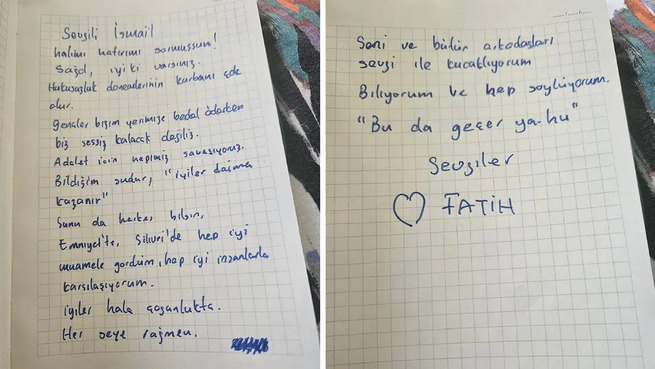 Sevgili İsmail
halimi hatırımı sormuşsun!
Sağol, iyi ki varsınız.
Hukusuzluk dönemlerinin kurbanı çok
olur.
gençler bizim yerimize bedel öderken
biz sessiz kalacak değiliz.
Adalet için hepimiz savaşıyoruz.
Bildiğim şudur, "iyiler daima
kazanır"
Şunu da herkes bilsin,
Emniyet'te, Silivri'de hep iyi
muamele gördüm, hep iyi insanlarla
karşılaşıyorum.
iyiler hala çoğunlukta.
Her şeye rağmen.
Seni ve bütün arkadaşları
sevgi ile kucaklıyorum
Biliyorum ve hep söylüyorum.
"Bu da geçer ya-hu"
Sevgiler
FATİH